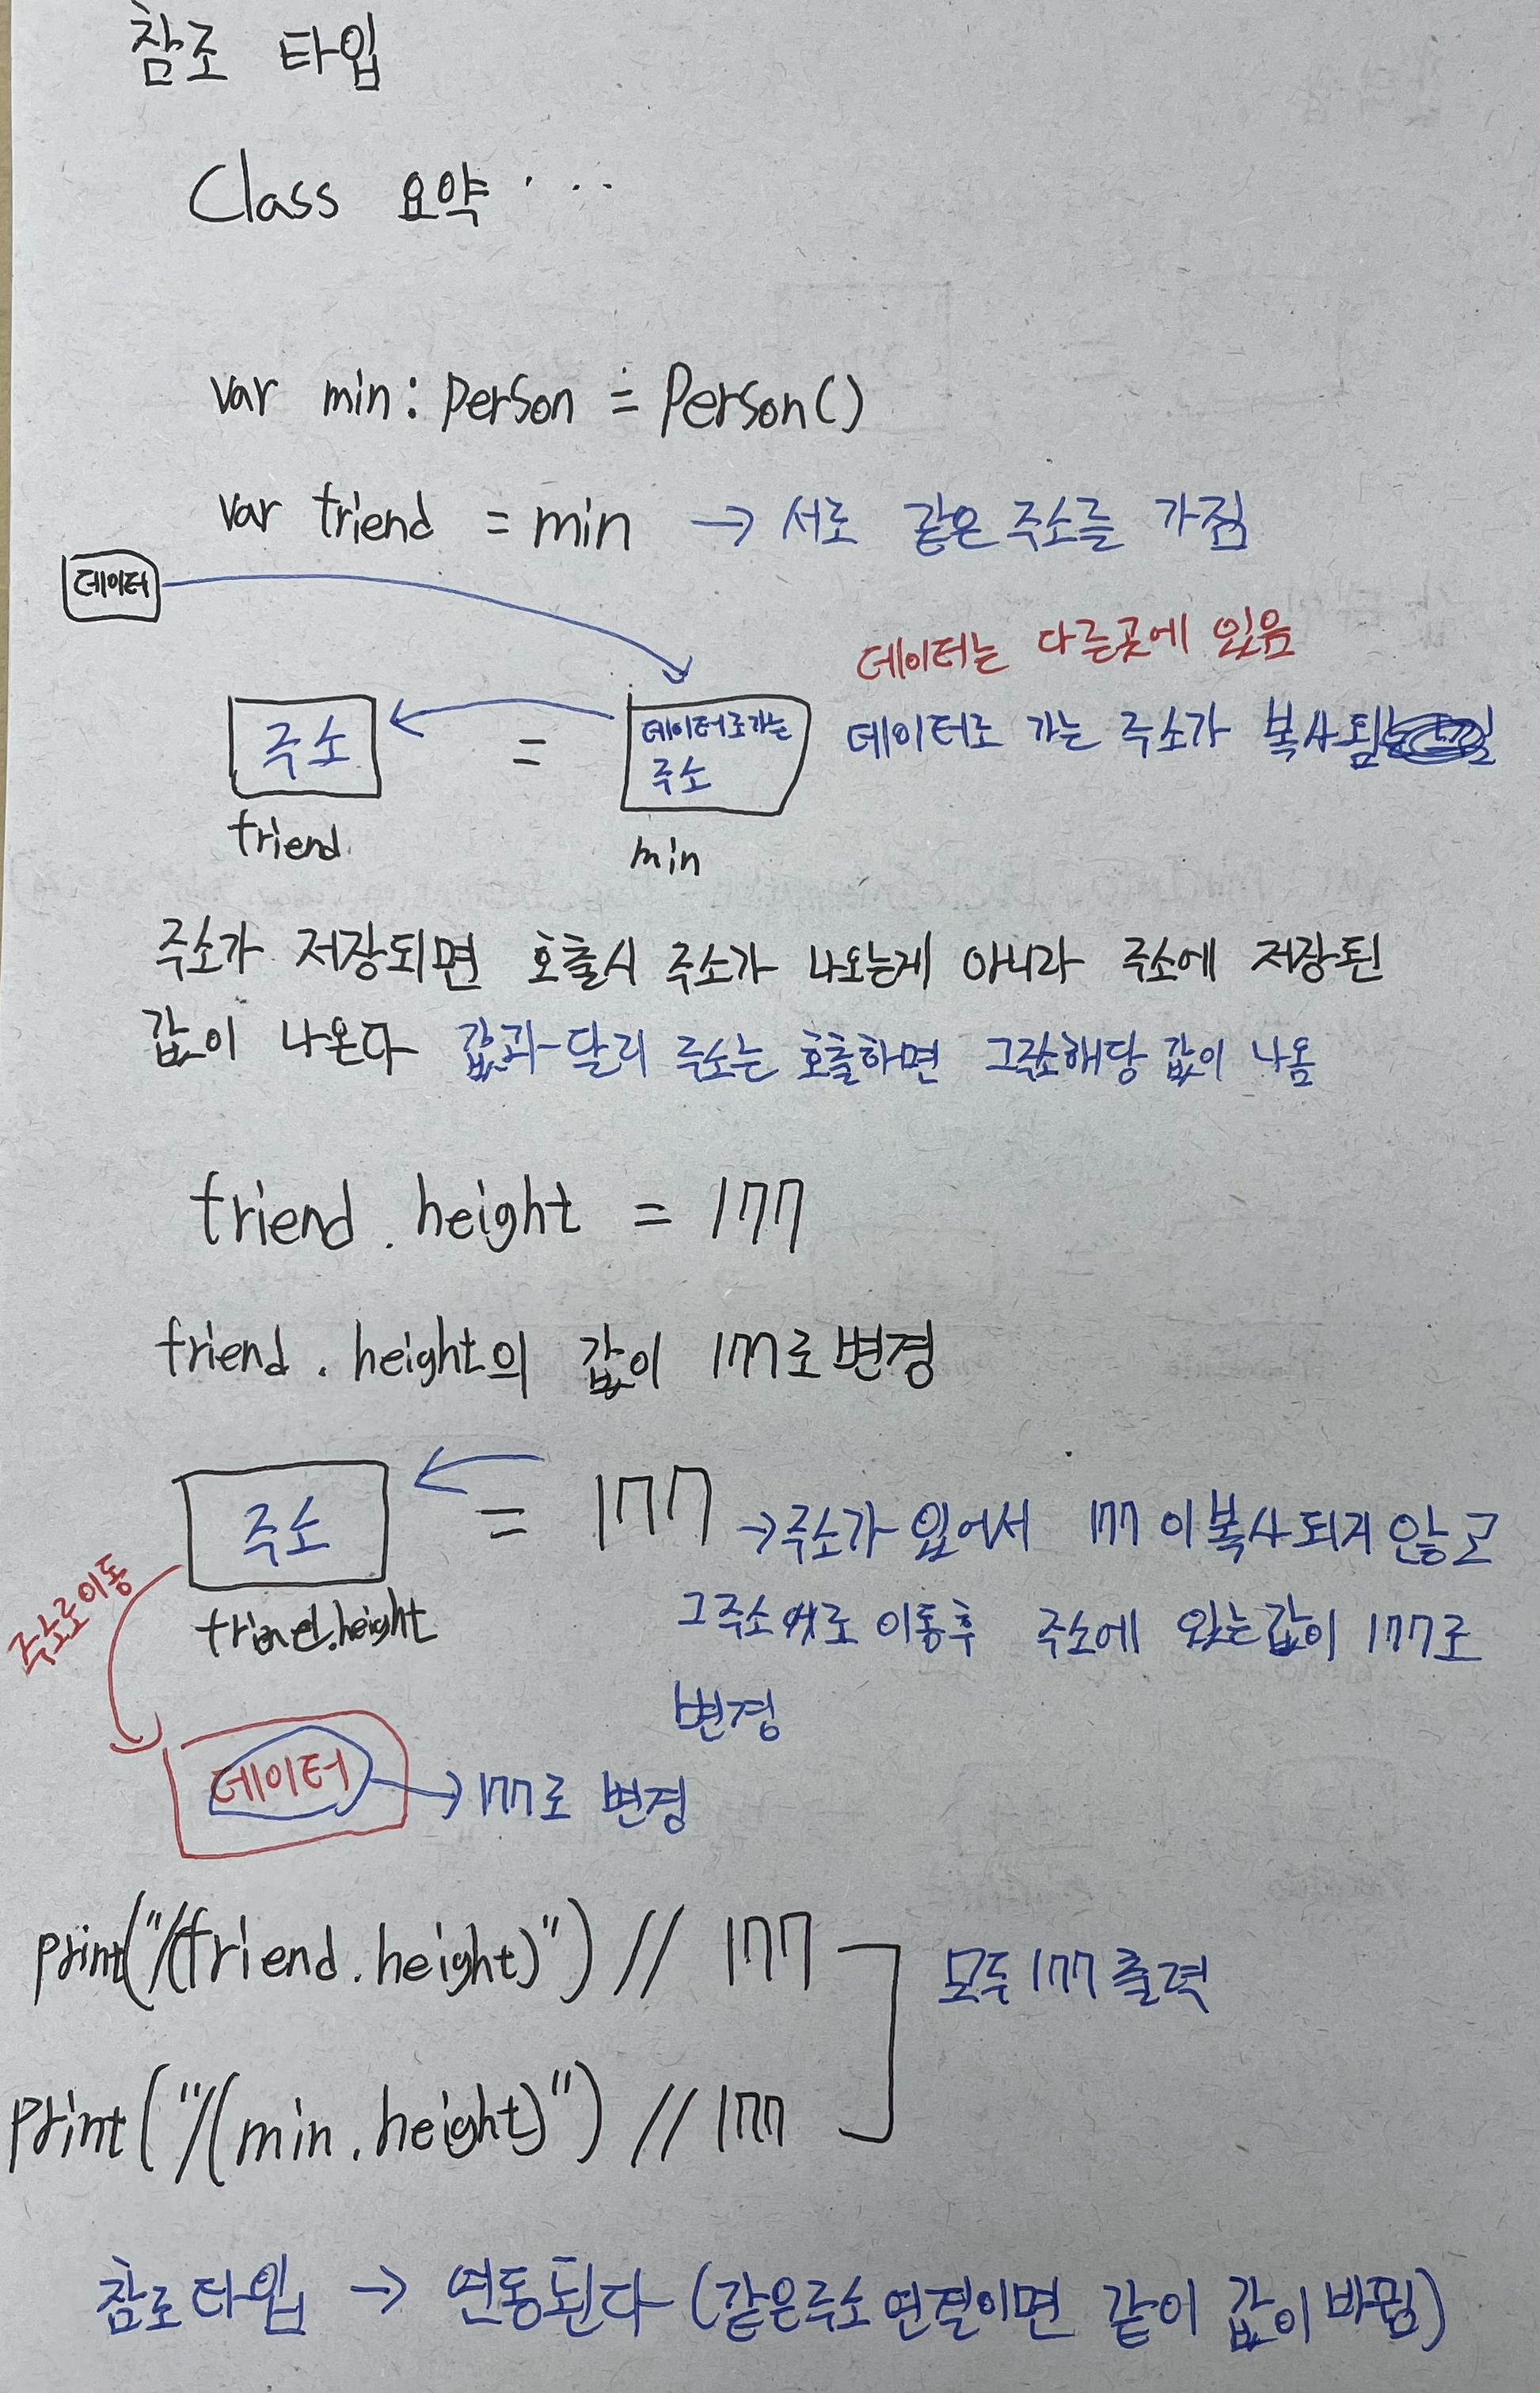 참조 타입
Class 요약 · · ·
var min: person = Person()
var friend = min → 서로 같은 주소를 가짐
데이터
데이터는 다른곳에 있음
주소 = 데이터로가는 주소
데이터로 가는 주소가 복사됨
friend
min
주소가 저장되면 호출시 주소가 나오는게 아니라 주소에 저장된
값이 나온다 값과 달리 주소는 호출하면 그주소해당 값이 나옴
friend.height = 177
friend.height의 값이 177로 변경
주소 = 177 → 주소가 있어서 177이 복사되지 않고
그주소로 이동후 주소에 있는값이 177로
변경
friend.height
주소로 이동
데이터 → 177로 변경
print("/(friend.height)") // 177
모두 177 출력
print("/(min.height)") // 177
참조타입 → 연동된다 (같은주소 연결이면 같이 값이 바뀜)